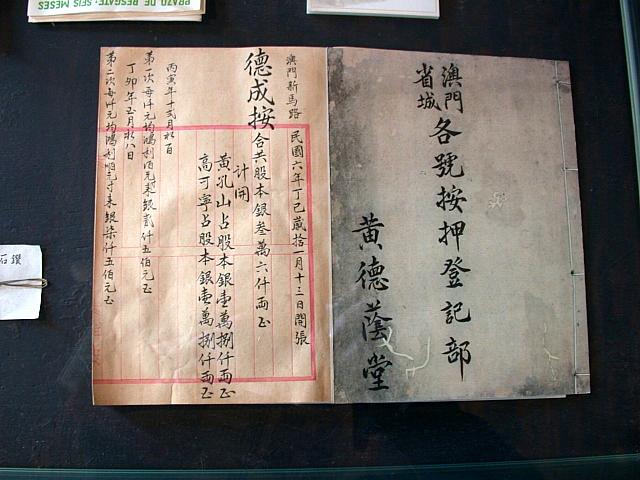 PRAZO DE RESGATE: SEIS MESES
澳門
省城
各號按押登記部
黃德蔭堂
澳門新馬路
民國六年丁已歲拾一月十三日開張
德成按合共股本銀叁萬六仟両正
計開
黃孔山占股本銀壹萬捌仟両正
高可寧占股本銀壹萬捌仟両正
丙寅年十弍月初一日
第一次每仟元均鴻利伯元來銀弍仟五伯元正
丁卯年五月初八日
第二次每仟元均鴻利元來銀柒仟五伯元正
石鑽